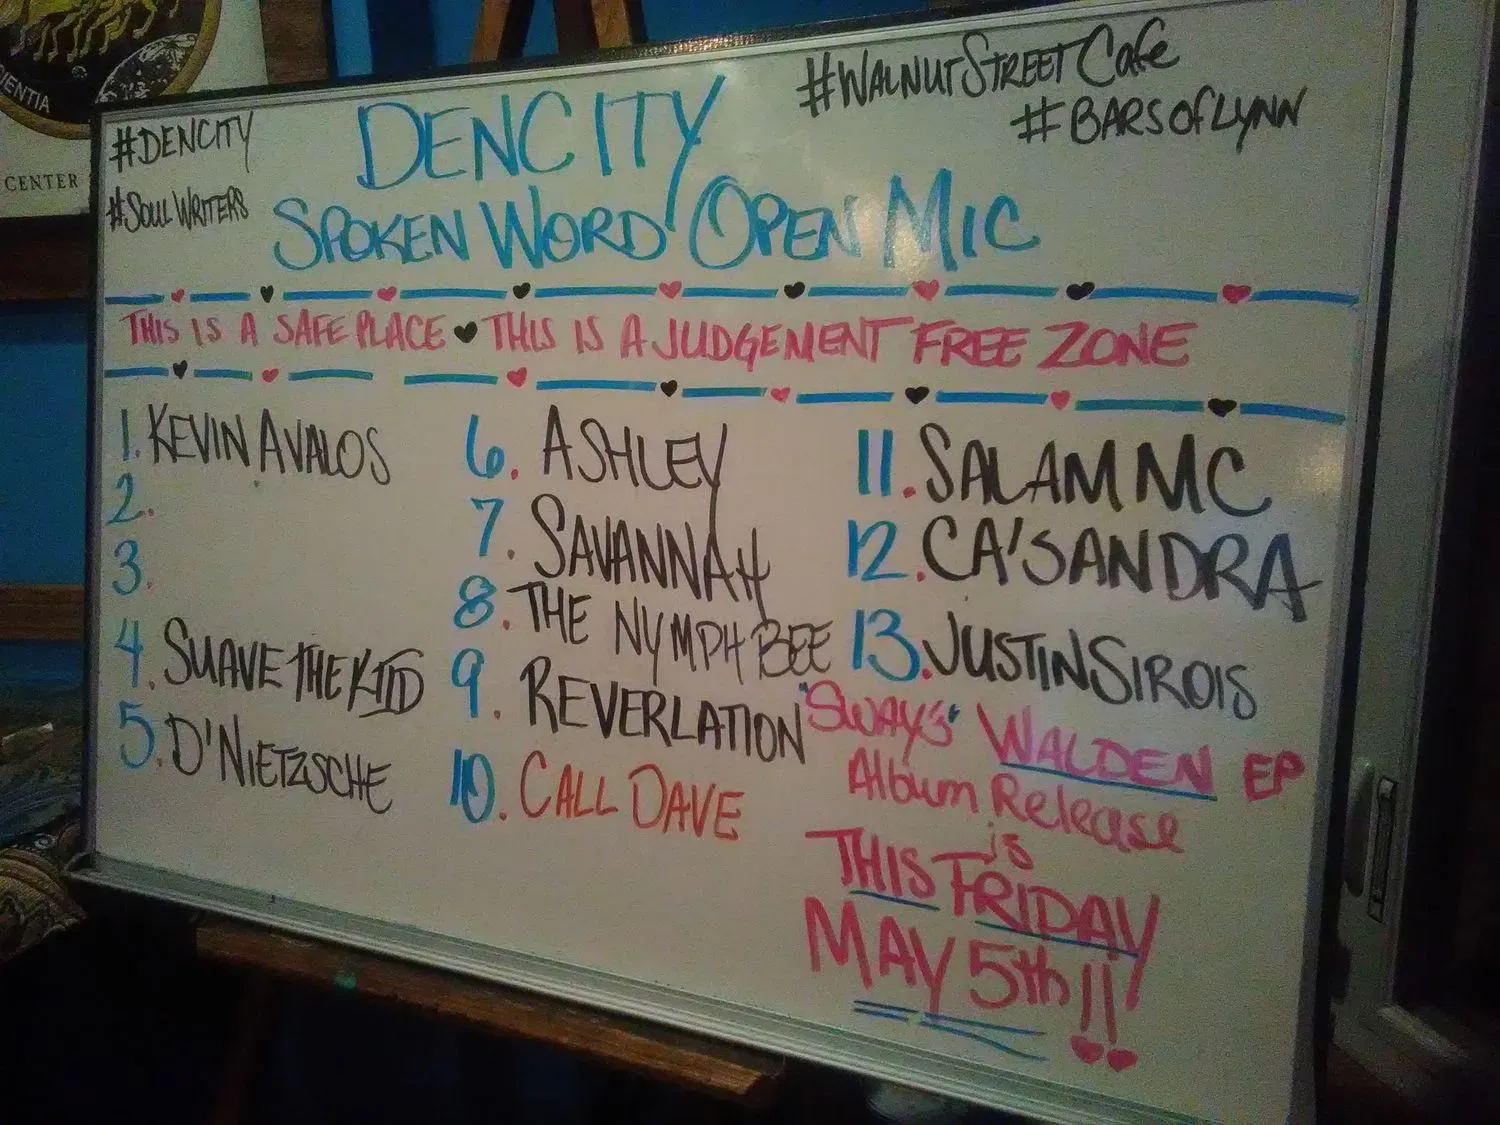 IENTIA
CENTER
#DENCITY
#SOUL WRITERS
DENCITY
SPOKEN WORD OPEN MIC
#WALNUT STREET Cafe
#BARSOFLYNN
THIS IS A SAFE PLACE ♥ THIS IS A JUDGEMENT FREE ZONE
1. KEVIN AVALOS
2.
3.
4. SUAVE THE KID
5. D'NIETZSCHE
6. ASHLEY
7. SAVANNAH
8. THE NYMPH BEE
9. REVERLATION
10. CALL DAVE
11. SALAM MC
12. CA'SANDRA
13. JUSTIN SIROIS
"SWAYS" WALDEN EP
Album Release
is
THIS FRIDAY
MAY 5th!!